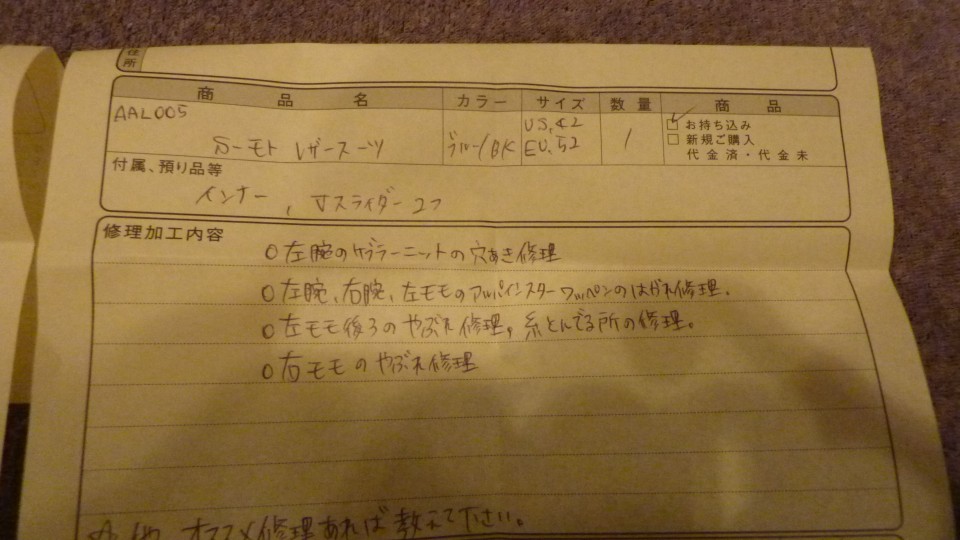 住所
商品名 カラー サイズ 数量 商品
AAL005 US,42 お持ち込み
Sーモト レザースーツ ブルー/BK EU,52 1 新規ご購入
代金済・代金未
付属、預り品等
インナー, スライダー 2つ
修理加工内容
○左腕のケブラーニットの穴あき修理
○左腕、右腕、左モモのアルパインスターワッペンのはがれ修理。
○左モモ後ろのやぶれ修理, 糸とんでる所の修理。
○右モモのやぶれ修理
他、オススメ修理あれば教えて下さい。